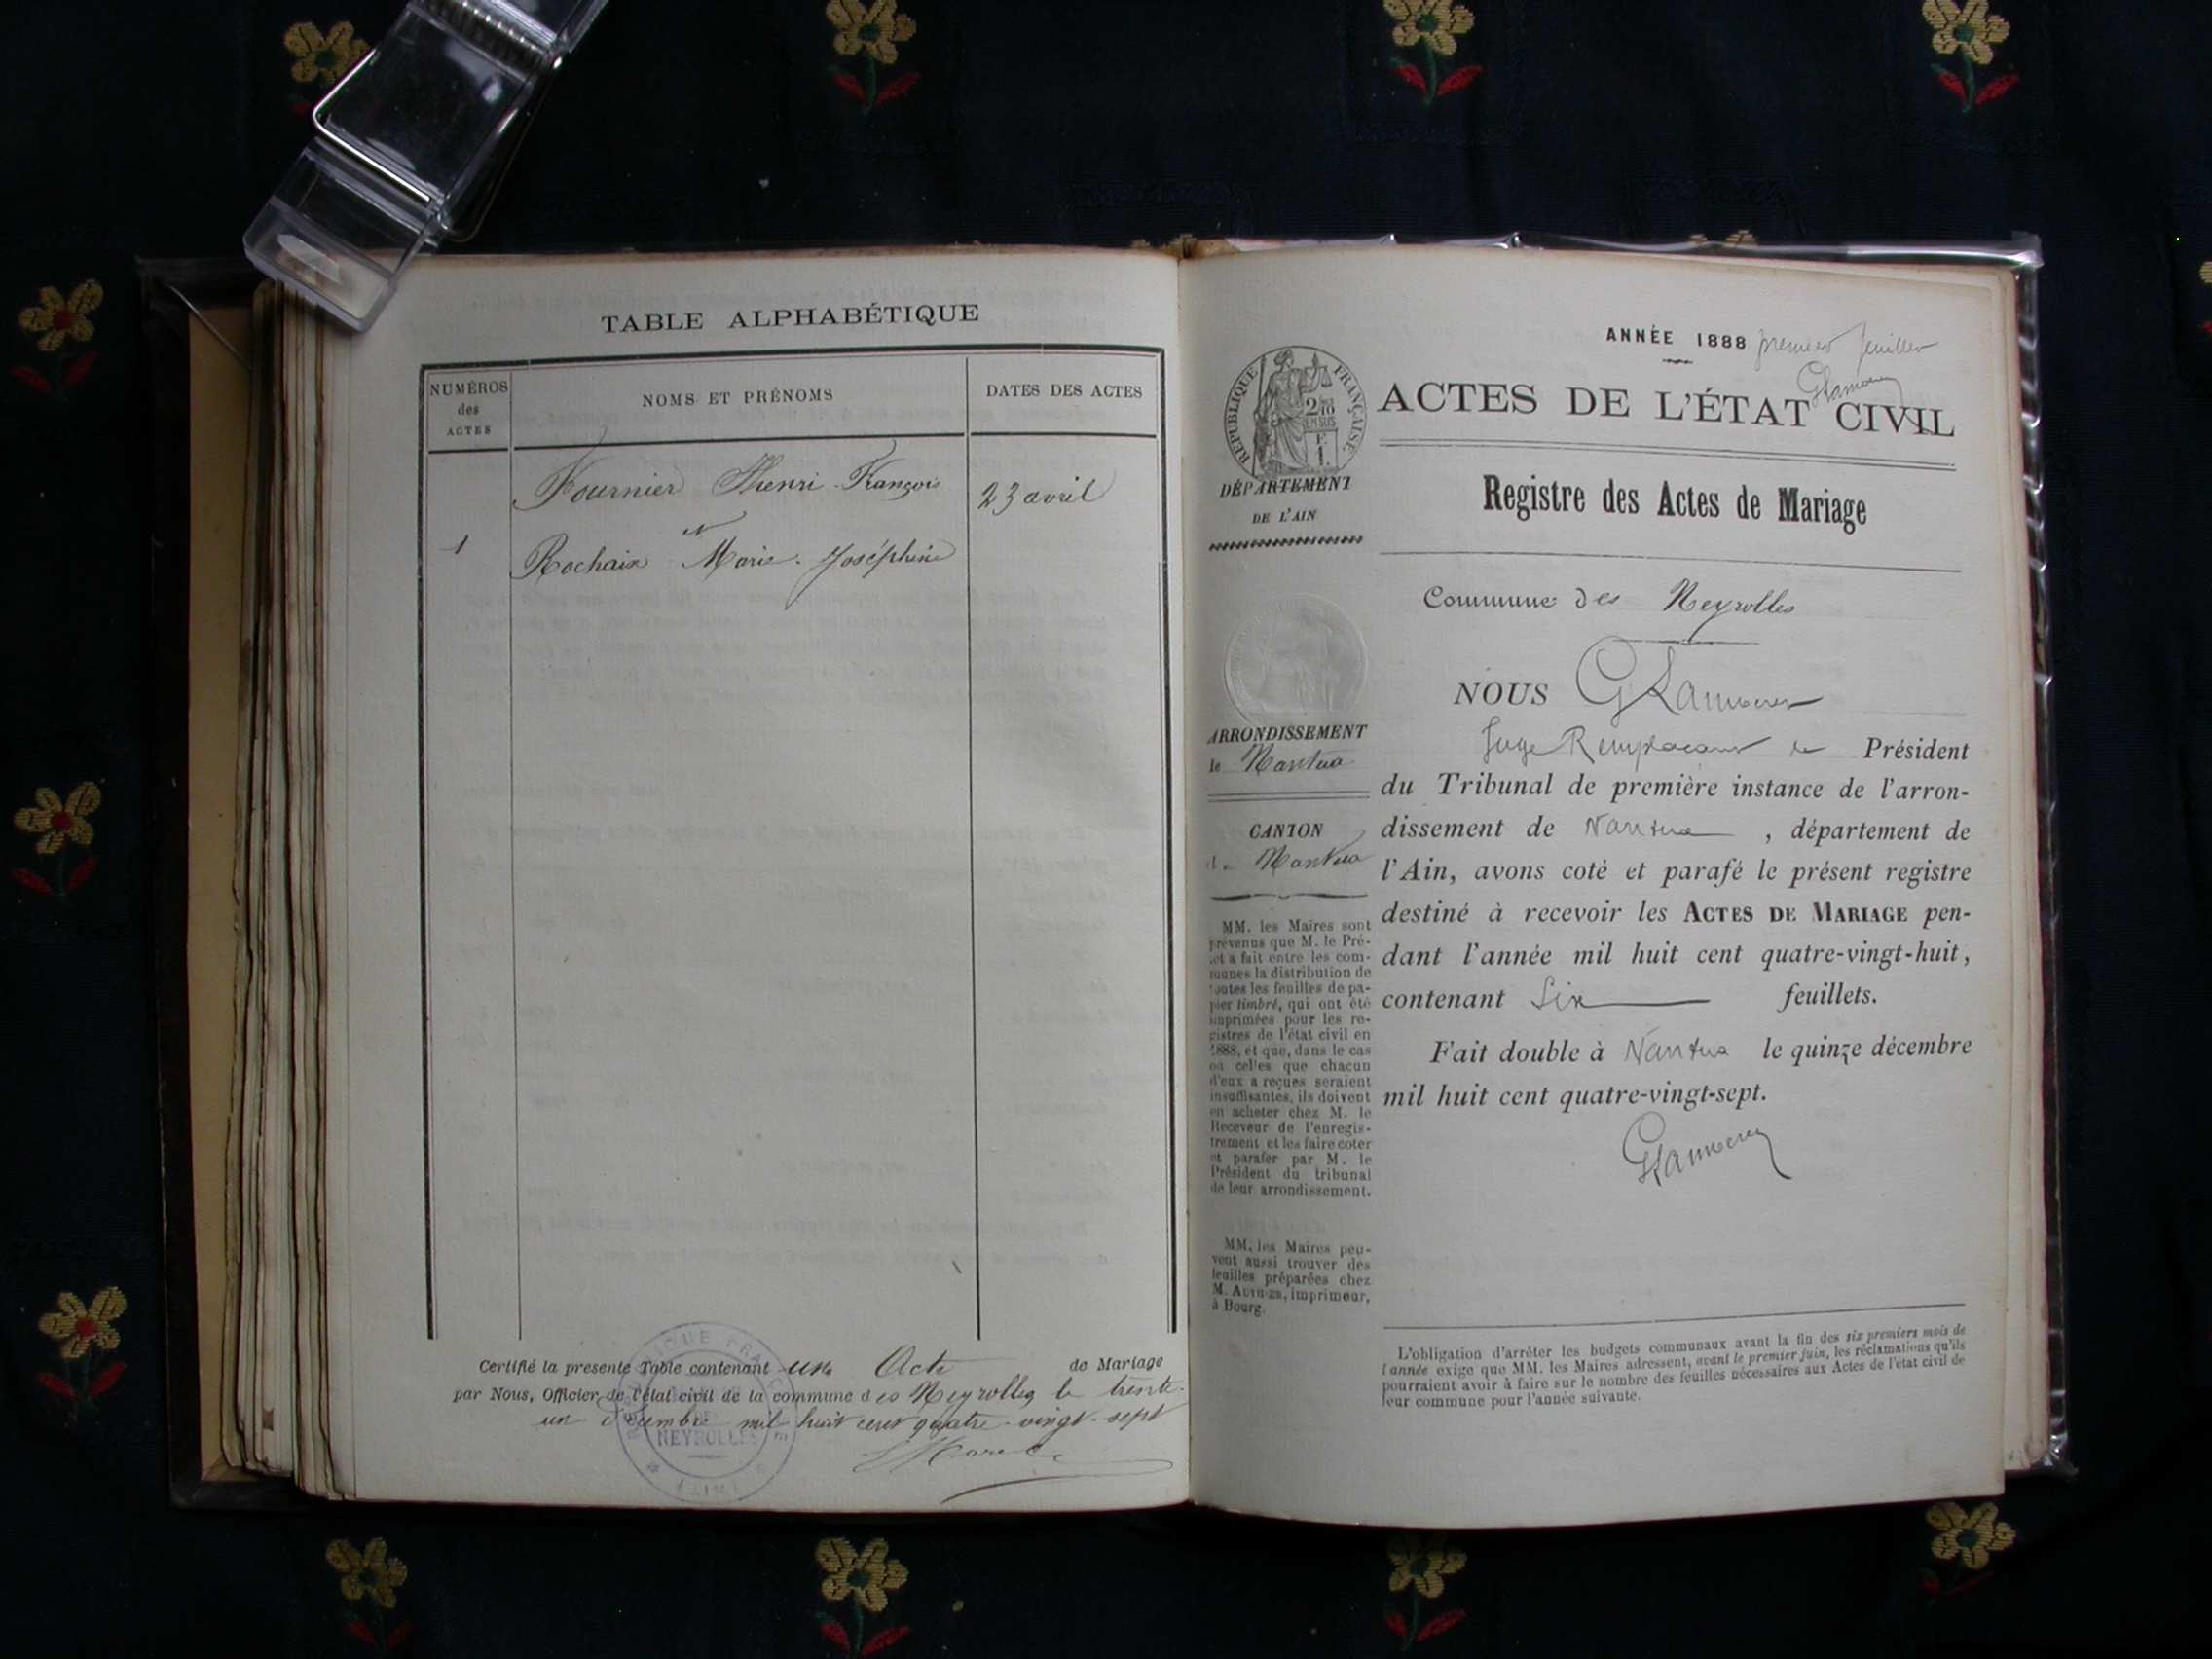 TABLE ALPHABÉTIQUE
NUMÉROS des ACTES
NOMS ET PRÉNOMS
DATES DES ACTES
Fournier Henri François
23 avril
1
Rochaix Marie Joséphine
Certifié la presente Table contenant un Acte de Mariage
par Nous, Officier de l'état civil de la commune des Neyrolles le trente-
un décembre mil huit cent quatre-vingt-sept
NEYROLLES
AIN
ANNÉE 1888 premier feuillet
RÉPUBLIQUE FRANÇAISE
ACTES DE L'ÉTAT CIVIL
DÉPARTEMENT
DE L'AIN
Registre des Actes de Mariage
Commune des Neyrolles
NOUS
Juge Remplaçant le Président
du Tribunal de première instance de l'arron-
dissement de Nantua, département de
l'Ain, avons coté et parafé le présent registre
destiné à recevoir les ACTES DE MARIAGE pen-
dant l'année mil huit cent quatre-vingt-huit,
contenant Six feuillets.
Fait double à Nantua le quinze décembre
mil huit cent quatre-vingt-sept.
ARRONDISSEMENT
de Nantua
CANTON
de Nantua
MM. les Maires sont
prévenus que M. le Pré-
fet a fait entre les com-
munes la distribution de
toutes les feuilles de pa-
pier timbré, qui ont été
imprimées pour les re-
gistres de l'état civil en
1888, et que, dans le cas
où celles que chacun
d'eux a reçues seraient
insuffisantes, ils doivent
en acheter chez M. le
Receveur de l'enregis-
trement et les faire coter
et parafer par M. le
Président du tribunal
de leur arrondissement.
MM. les Maires peu-
vent aussi trouver des
feuilles préparées chez
M. imprimeur,
à Bourg.
L'obligation d'arrêter les budgets communaux avant la fin des six premiers mois de
l'année exige que MM. les Maires adressent, avant le premier juin, les réclamations qu'ils
pourraient avoir à faire sur le nombre des feuilles nécessaires aux Actes de l'état civil de
leur commune pour l'année suivante.